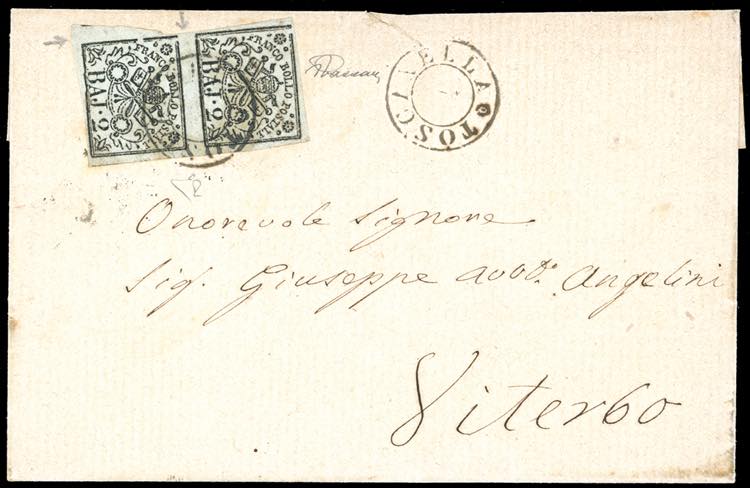 FRANCO BOLLO POSTALE
BAJ. 2
FRANCO BOLLO POSTALE
BAJ. 2
TOSCANELLA
Onorevole Signore
Sig. Giuseppe avvo. Angelini
Viterbo